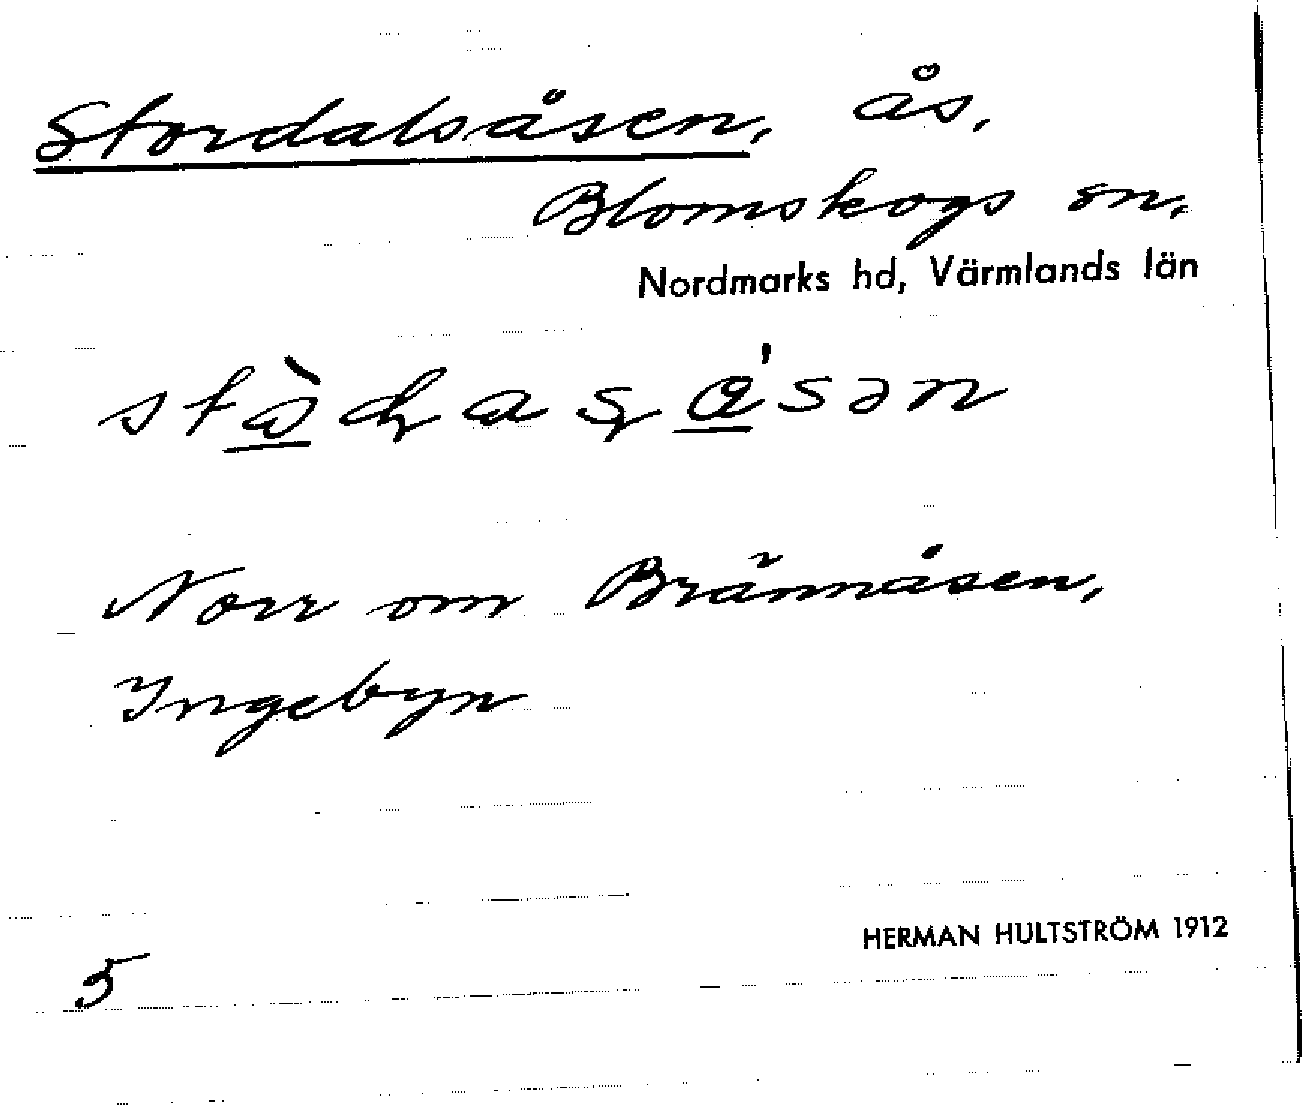 Stordalsåsen, ås,
Blomskogs sn,
Nordmarks hd, Värmlands län
Norr om Brännåsen,
Ingebyn
HERMAN HULTSTRÖM 1912
5